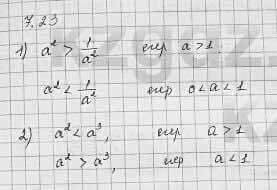 7.23
1) a² > 1/a² егер a > 1.
a² < 1/a² егер 0 < a < 1
2) a² < a³, егер a > 1
a² > a³, егер a < 1